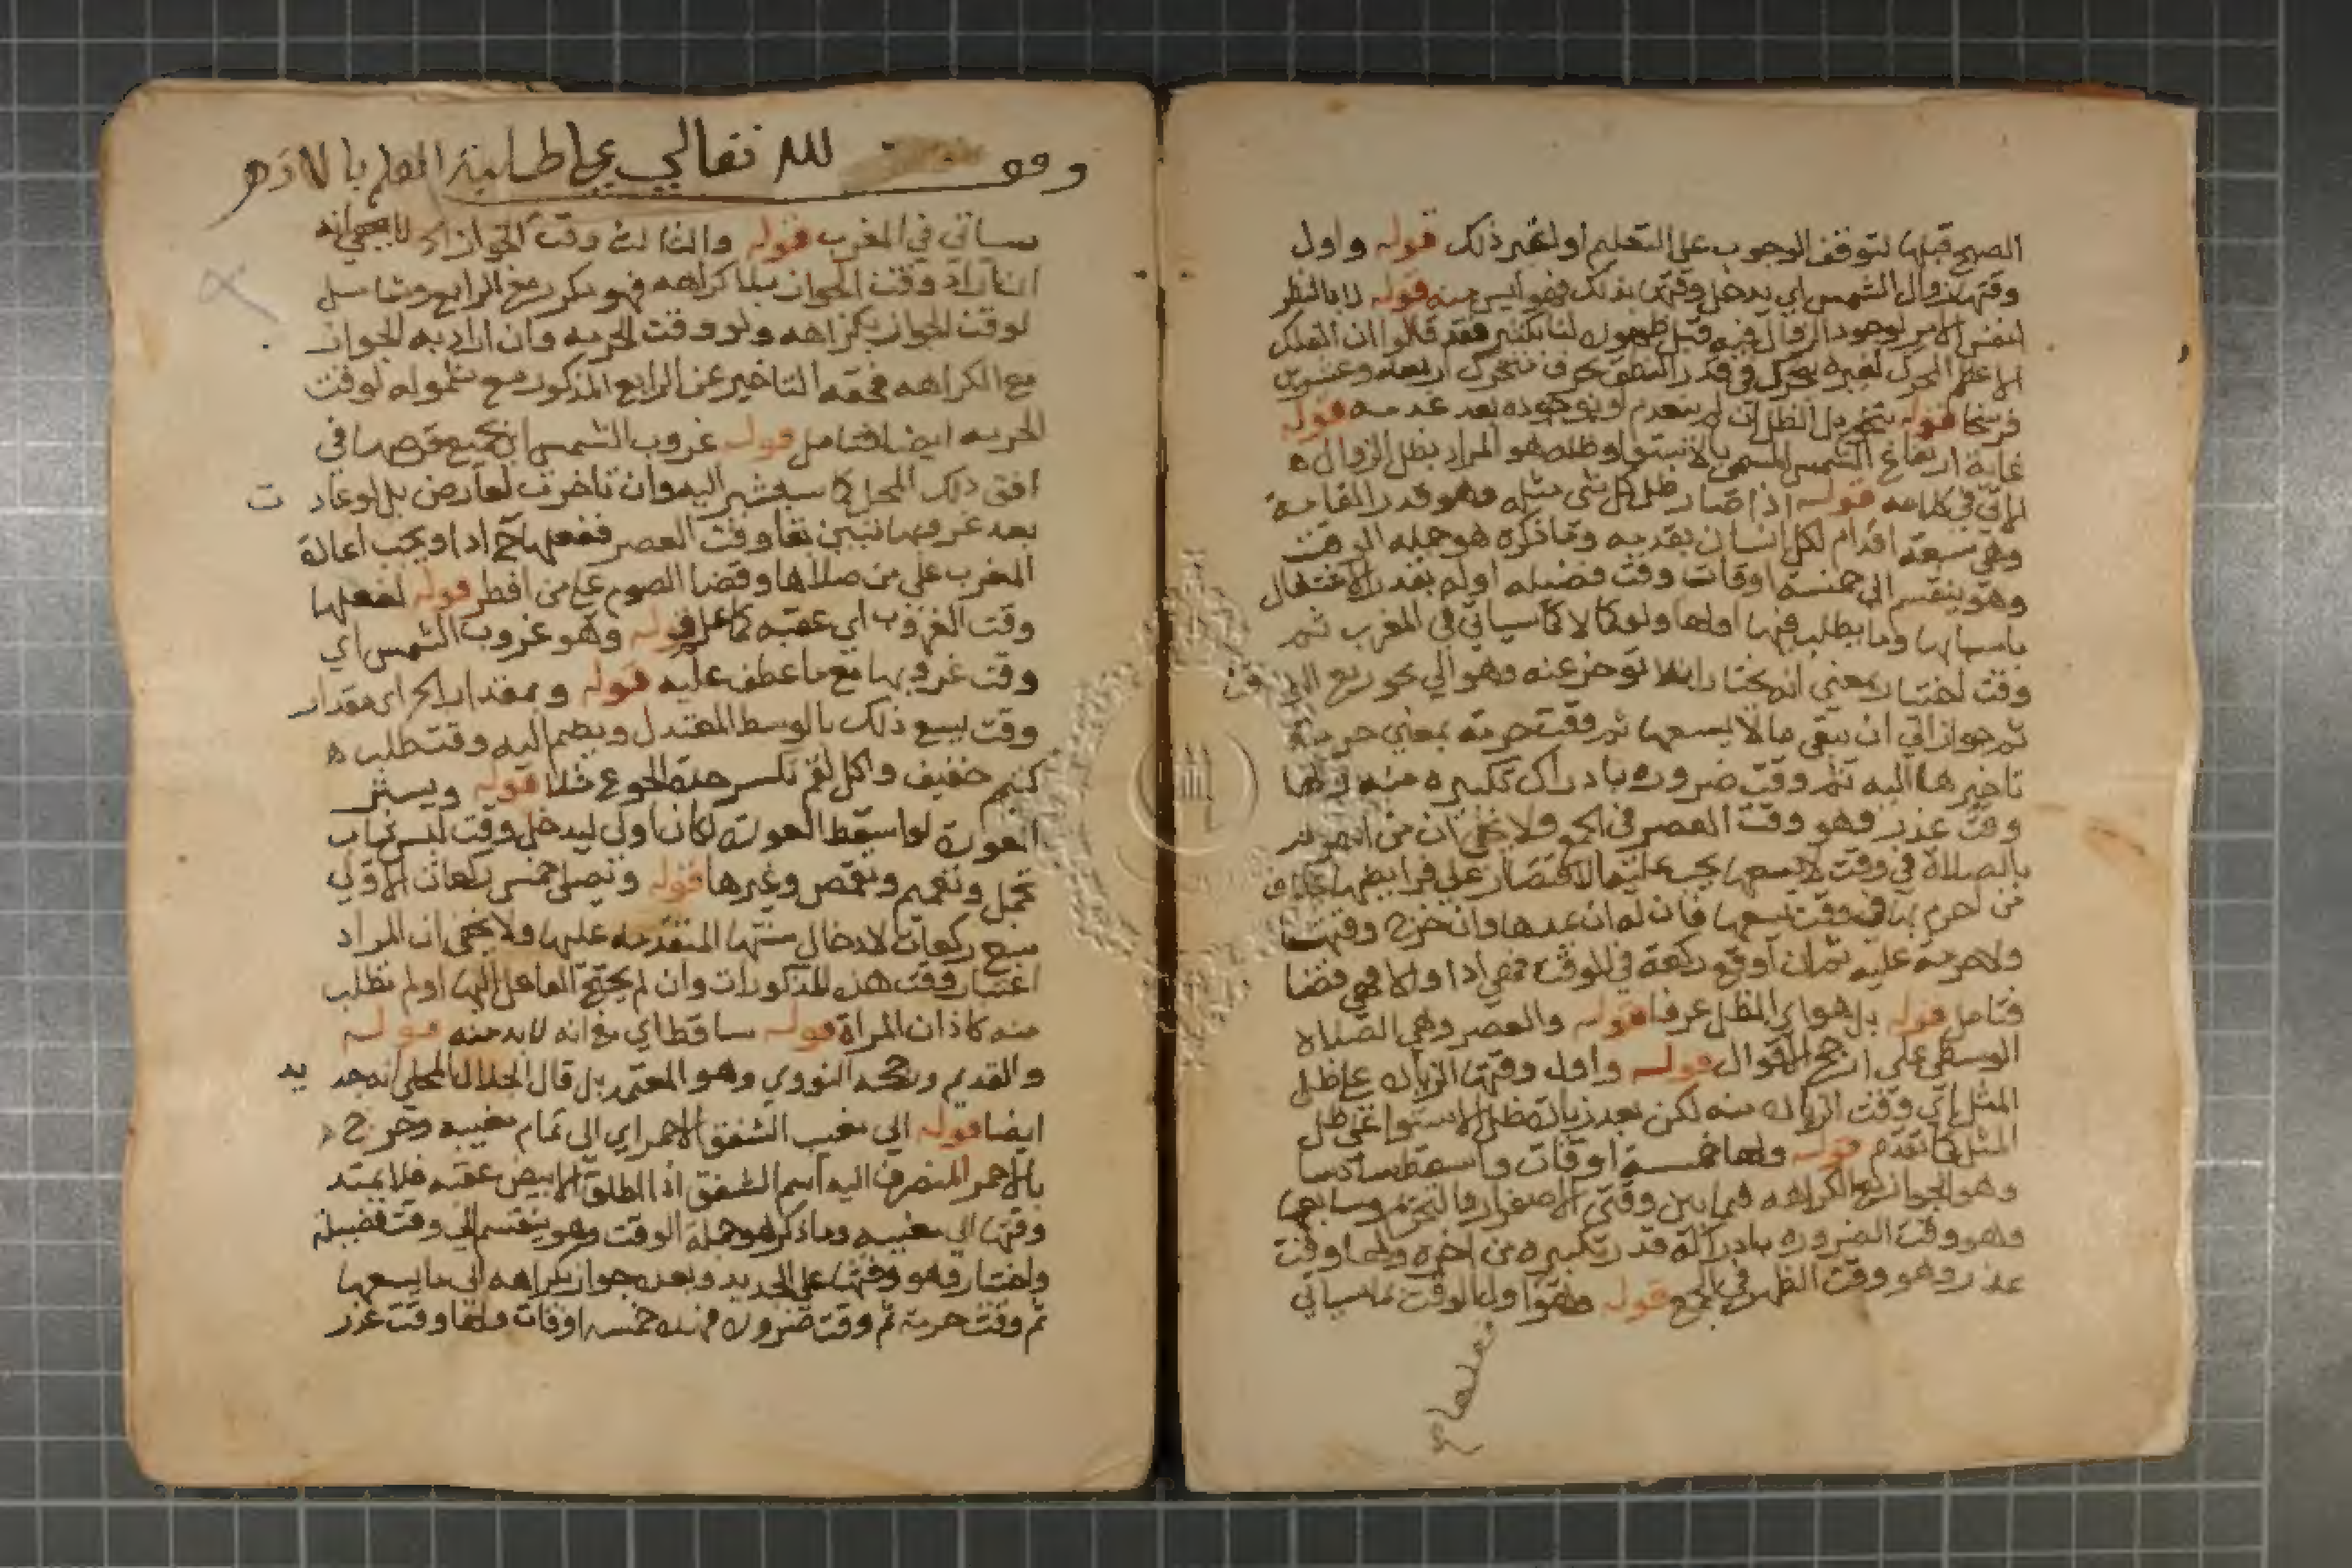 الصبح قبلها لتوقف الوجوب على التعليم او لغير ذلك قوله واول
وقتها زوال الشمس اي يدخل وقتها بذلك فهو ليس منه قوله لا بالنظر
لنفس الامر لوجود الزوال فيه قبل ظهوره لنا بكثير فقد قالوا ان الفلك
الاعظم المحرك لغيره يتحرك في قدر النطق بحرف متحرك اربعة وعشرين
فرسخا قوله بتحويل الظل ان لم ينعدم او بوجوده بعد عدمه قوله
غاية ارتفاع الشمس المسمى بالاستوا وظله هو المراد بظل الزوال ه
الاتي في كلامه قوله اذا صار ظل كل شي مثله وهو قدر القامة
وهي سبعة اقدام لكل انسان بقدميه وما ذكره هو جملة الوقت
وهو ينقسم الى خمسة اوقات وقت فضيله اوله بقدر الاشتغال
باسبابها وما يطلب فيها اولها ولو كمالا كما سياتي في المغرب ثم
وقت اختيار بمعني انه يختار ان لا توخر عنه وهو الي نحو ربع الوقت
ثم جواز الي ان يبقى ما لا يسعها ثم وقت حرمة بمعني حرمة
تاخيرها اليه ثم وقت ضرورة بادراك تكبيره منه ولها
وقت عذر وهو وقت العصر في الجمع ولا يخفى ان من احرم
بالصلاة في وقت لا يسعها يجب عليه الاقتصار على فرايضها بخلاف
من احرم بها في وقت يسعها فان له ان يمدها وان خرج وقتها
ولا حرمة عليه ثم ان اوقع ركعة في الوقت فهي ادا والا فهي قضا
فتامل قوله بل هو اي الظل عرفا قوله والعصر وهي الصلاة
الوسطى على ارجح الاقوال قوله واول وقتها الزيادة على ظل
المثل اي وقت الزيادة منه لكن بعد زيادة ظل الاستوا على ظل
المثل كما تقدم قوله ولها خمسة اوقات واسقط سادسا
وهو الجواز مع الكراهه فيما بين وقتي الاصفرار والتحريم وسابعها
وهو وقت الضروره بادراك قدر تكبيره من اخره ولها وقت
عذر وهو وقت الظهر في الجمع قوله اول الوقت ما سياتي
وقف لله تعالي على طلبة العلم بالازهر
سياتي في المغرب قوله والثالث وقت الجواز لا يخفى انه
ان اراد وقت الجواز بلا كراهه فهو مكرر مع الرابع وشامل
لوقت الجواز بكراهه ولو وقت الحرمه وان اراد به الجواز
مع الكراهه فحقه التاخير عن الرابع المذكور مع شموله لوقت
الحرمه ايضا فتامل قوله غروب الشمس اي جميع قرصها في
افق ذلك المحل كما سيشير اليه وان تاخرت لعارض بل لو عادت
بعد غروبها تبين بقا وقت العصر ففعلها ح ادا ويجب اعادة
المغرب على من صلاها وقضا الصوم على من افطر قوله لفعلها
وقت الغروب اي عقبه كما علم قوله وهو غروب الشمس اي
وقت غروبها مع ما عطف عليه قوله وبمقدار الخ اي مقدار
وقت يسع ذلك بالوسط المعتدل ويضم اليه وقت طلب ه
تيمم خفيف واكل لقم تكسر حدة الجوع قوله ويستر
العورة لو اسقط العورة لكان اولى ليدخل وقت لبس ثياب
تجمل وتعمم وتقمص وغيرها قوله وتصلي خمس ركعات الاولى
سبع ركعات لادخال سنتها المتقدمه عليها ولا يخفى ان المراد
اعتبار وقت هذه المذكورات وان لم يحتج الفاعل اليها او لم تطلب
منه كاذان المراة قوله ساقط اي مع انه لا بد منه قوله
والقديم ورجحه النووي وهو المعتمد بل قال الجلال المحلي انه جديد
ايضا قوله الي مغيب الشفق الاحمر اي الى تمام مغيبه وخرج
بالاحمر المنصرف اليه اسم الشفق اذا اطلق الابيض عقبه فلا يمتد
وقتها الى مغيبه وما ذكره هو جملة الوقت وهو ينقسم الي وقت فضيلة
واختيار وهو وقتها على الجديد وبعده جواز بكراهه الى ما يسعها
ثم وقت حرمة ثم وقت ضرورة فهذه خمسة اوقات ولها وقت عذر